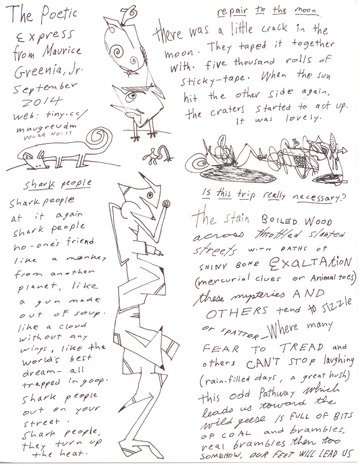 The Poetic
Express
from Maurice
Greenia, Jr.
September
2014
web: tiny.cc/
maugreudm
repair to the moon
there was a little crack in the
moon. They taped it together
with five thousand rolls of
sticky-tape. When the sun
hit the other side again,
the craters started to act up.
It was lovely.
shark people
Shark people
at it again
shark people
no-one's friend
like a monkey
from another
planet, like
a gun made
out of soup.
like a cloud
without any
wings, like the
world's best
dream- all
trapped in goop.
Shark people
out on your
street.
Shark people,
they turn up
the heat.
Is this trip really necessary?
The stain BOILED WOOD
across throttled slanted
streets WITH PATHS OF
SHINY BONE EXALTATION
(mercurial clues or Animal toes)
these mysteries AND
OTHERS tend to sizzle
or SPATTER_Where many
FEAR TO TREAD and
others CAN'T STOP laughing
(rain-filled days, a great hush)
this odd Pathway which
leads us toward the
wild geese IS FULL OF BITS
OF COAL and brambles,
real brambles then too
SOMEHOW, OUR FEET WILL LEAD US